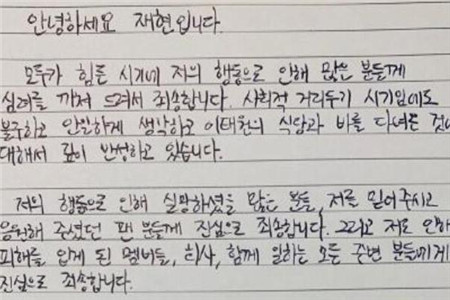 안녕하세요 재현입니다.
모두가 힘든 시기에 저의 행동으로 인해 많은 분들께
심려를 끼쳐 드려서 죄송합니다. 사회적 거리두기 시기임에도
불구하고 안일하게 생각하고 이태원의 식당과 바를 다녀온 것에
대해서 깊이 반성하고 있습니다.
저의 행동으로 인해 실망하셨을 많은 분들, 저를 믿어주시고
응원해 주셨던 팬 분들께 진심으로 죄송합니다. 그리고 저로 인해
피해를 입게 된 멤버들, 회사, 함께 일하는 모든 주변 분들에게
진심으로 죄송합니다.